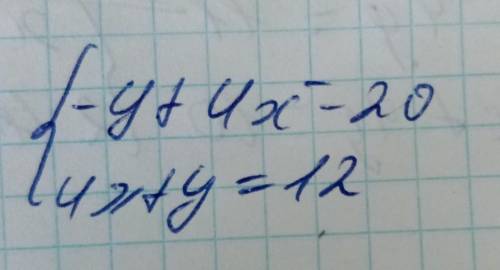 {-y+4x=20
4x+y=12